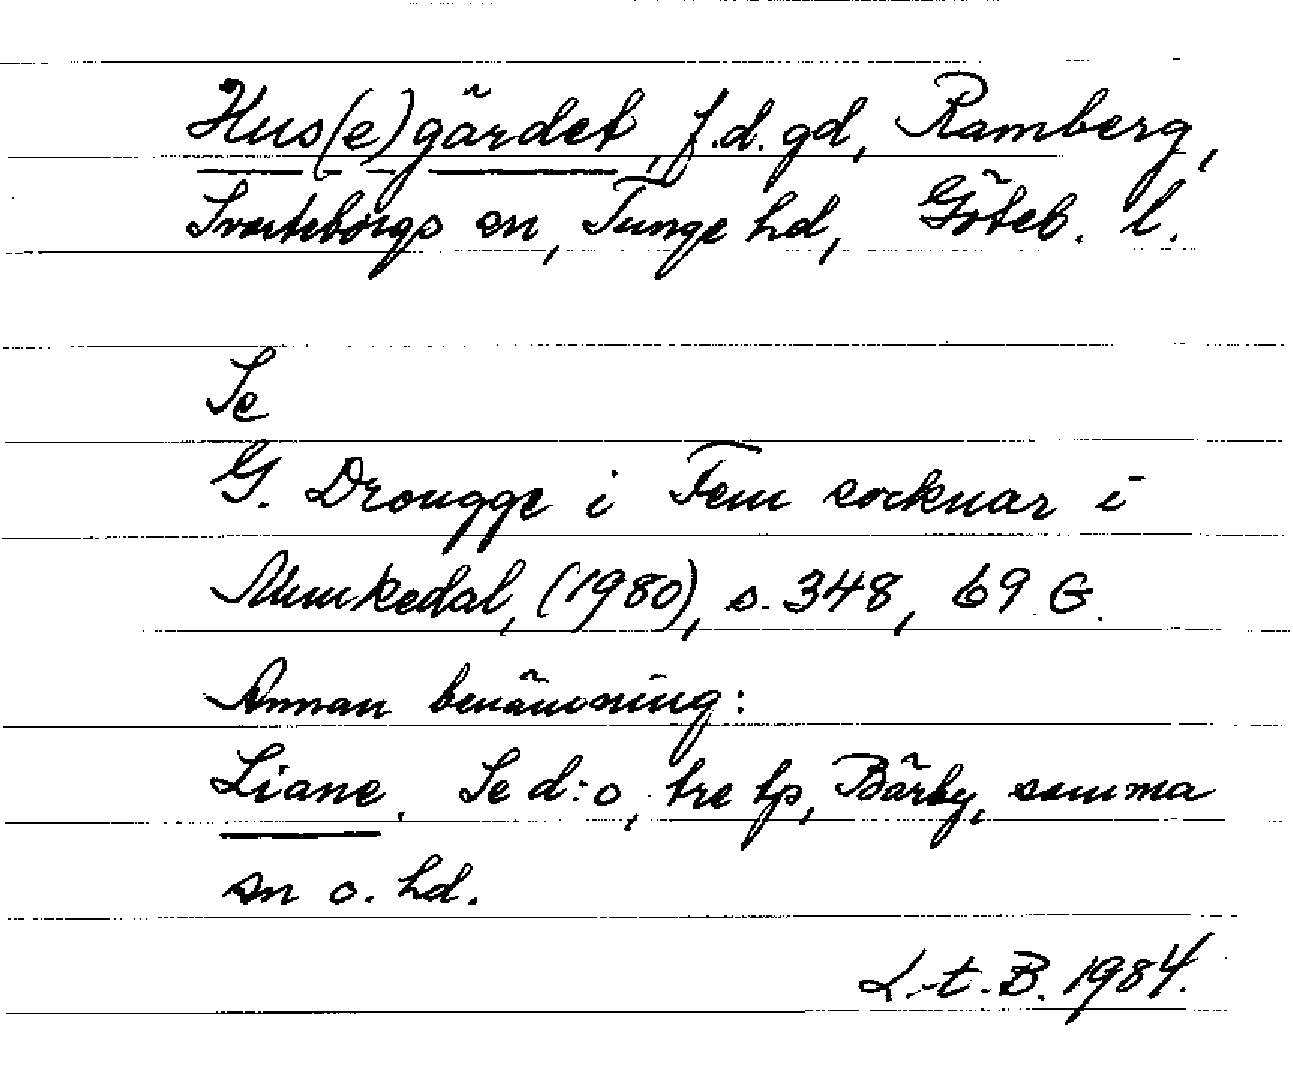 Hus(e)gärdet, f.d. gd, Ramberg,
Svarteborgs sn, Tunge hd, Göteb. l.
Se
G. Drougge i Fem socknar i
Munkedal, (1980), s. 348, 69 G.
Annan benämning:
Liane. Se d:o, tre tp, Bärby, samma
sn o. hd.
L.t.B. 1984.